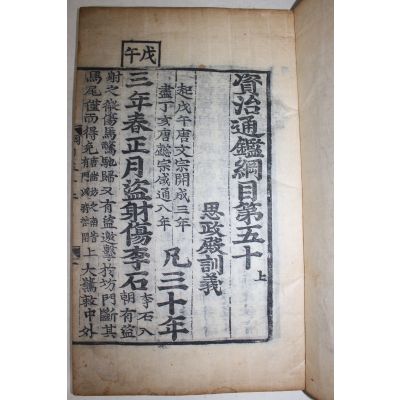 戊午
資治通鑑綱目第五十上
思政殿訓義
起戊午唐文宗開成三年
盡丁亥唐懿宗咸通八年
凡三十年
三年春正月盜射傷李石
李石入
朝有盜
射之微傷馬驚馳歸又有盜邀擊於坊門斷其
馬尾僅而得免
上大驚敕中外